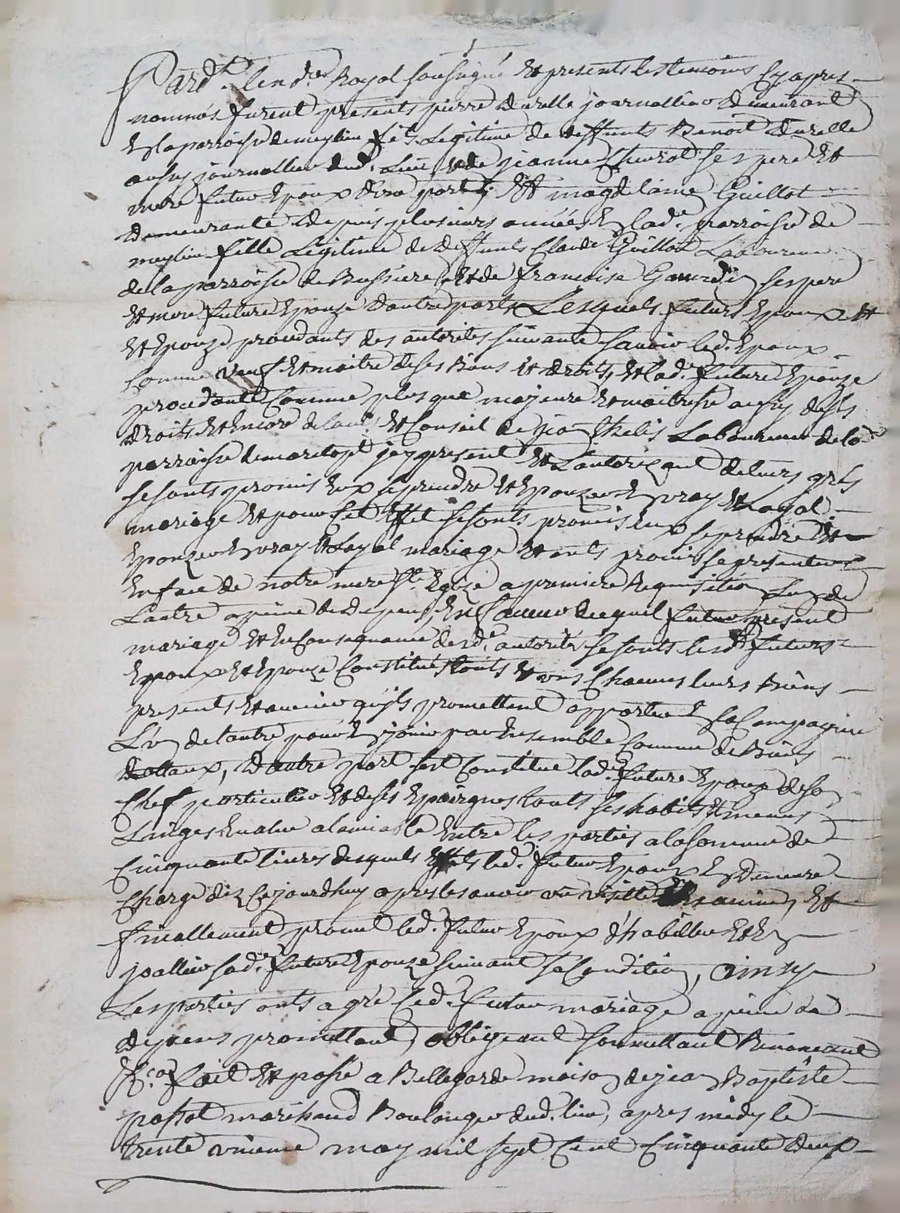 Pard.t Le no.re Royal soussigné Et presents les temoins Cy apres
nommés furent presents pierre Durelle journallier demeurant
En la parroisse de meylieu fils Legitime de deffunts Benoit Durelle
aussy journallier dud. Lieu, et de jeanne sespere Et
mere futur Epoux d'une part, Et magdelaine Guillot
demeurante depuis plusieurs années En lad.e parroisse de
meylieu fille Legitime de deffunt Claude Guillot Laboureur
de la parroisse de Bussiere et de francoise ses pere
Et mere future Epouze d'autre part, Lesquels futurs Epoux et
Et Epouze procedants des autorites suivante scavoir led. Epoux
comme veuf Et maitre de ses Biens et droits, Et lad.e future Epouze
procedante comme plus que majeure Et maitresse aussy de ses
droits Et Encore de l'avis Et Conseil de jean thelis Laboureur de la
parroisse de icy present Et L'autorizant de leurs grés
se sonts promis Eux a prendre Et Epouzer En vray Et Loyal
mariage Et pour cet Effet se sonts promis Eux se prendre Et
Epouzer En vray Et Loyal mariage Et onts promis se presenter
En face de notre mere S.te Eglize a premiere Requisition L'un de
L'autre a peine de depens, En faveur duquel futur present
mariage Et En Consequence desd.e autorités se sonts lesd.ts futurs
Epoux Et Epouze Constitués touts Et uns Chacuns leurs Biens
presents Et avenir qu'ils promettent apporter En la Compagnie
L'un de l'autre pour En jouir par Ensemble Comme de Biens
dottaux, D'autre part s'est Constitué lad.e future Epouze de son
Chef particulier Et de ses Epargnes touts ses habits Et menus
Linges Evalué a l'amiable Entre les parties a la somme de
Cinquante livres desquels Effets led. futur Epoux En demeure
Chargé dez Cejourdhuy apres les avoir vu visitté Examiné, Et
finallement promet led. futur Epoux d'habiller Et En
joaller sad.e future Epouze suivant sa Condition, ainsy
Les parties onts agré led. futur mariage a peine de
depens promettant, obligeant soumettant Renonceant
fait Et passé a Bellegarde maison de jean Baptiste
passot marchand Boulanger dud. lieu, apres midy le
trente unieme may mil sept Cent Cinquante deux